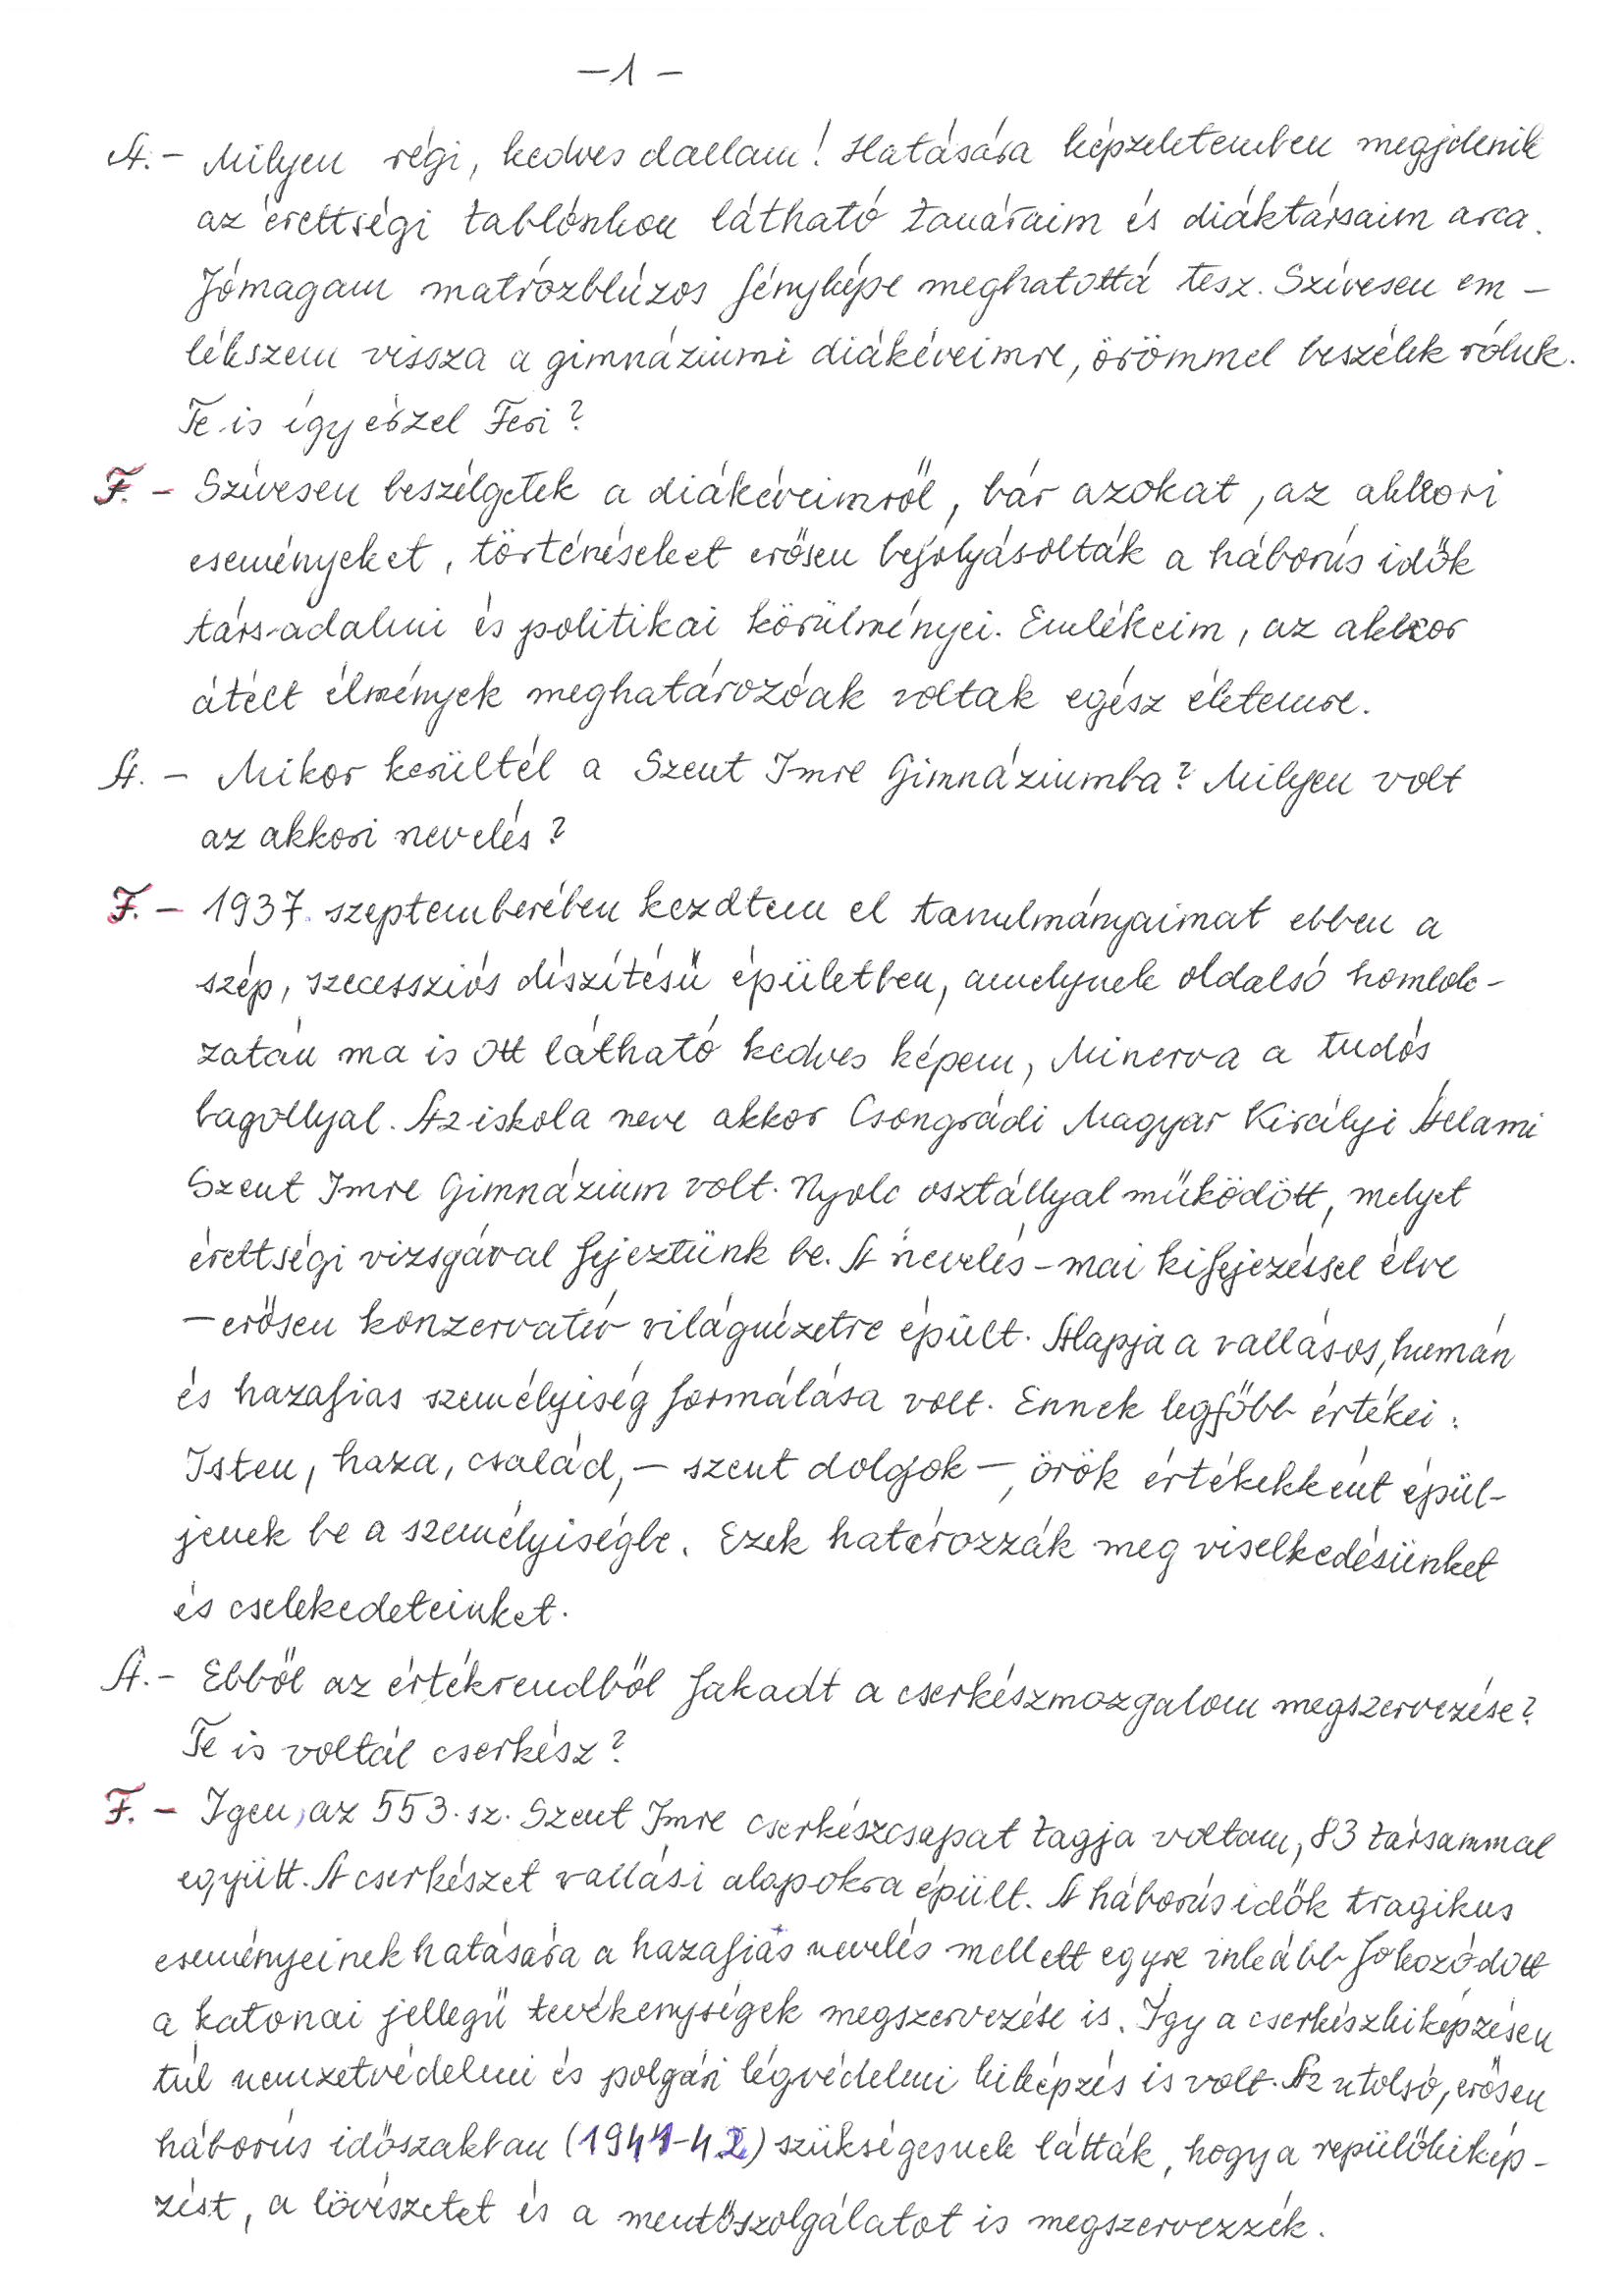 – 1 –
A. – Milyen régi, kedves dallam! Hatására képzeletemben megjelenik
az érettségi tablónkon látható tanáraim és diáktársaim arca.
Jómagam matrózblúzos fényképe meghatottá tesz. Szívesen em –
lékszem vissza a gimnáziumi diákéveimre, örömmel beszélek róluk.
Te is így érzel Feri?
F. – Szívesen beszélgetek a diákéveimről, bár azokat, az akkori
eseményeket, történéseket erősen befolyásolták a háborús idők
társadalmi és politikai körülményei. Emlékeim, az akkor
átélt élmények meghatározóak voltak egész életemre.
A. – Mikor kerültél a Szent Imre Gimnáziumba? Milyen volt
az akkori nevelés?
F. – 1937. szeptemberében kezdtem el tanulmányaimat ebben a
szép, szecessziós díszítésű épületben, amelynek oldalsó homlok-
zatán ma is ott látható kedves képem, Minerva a tudós
bagollyal. Az iskola neve akkor Csongrádi Magyar Királyi Állami
Szent Imre Gimnázium volt. Nyolc osztállyal működött, melyet
érettségi vizsgával fejeztünk be. A nevelés – mai kifejezéssel élve
– erősen konzervatív világnézetre épült. Alapja a vallásos, humán
és hazafias személyiség formálása volt. Ennek legfőbb értékei:
Isten, haza, család, – szent dolgok –, örök értékekként épül-
jenek be a személyiségbe. Ezek határozzák meg viselkedésünket
és cselekedeteinket.
A. – Ebből az értékrendből fakadt a cserkészmozgalom megszervezése?
Te is voltál cserkész?
F. – Igen, az 553. sz. Szent Imre cserkészcsapat tagja voltam, 83 társammal
együtt. A cserkészet vallási alapokra épült. A háborús idők tragikus
eseményeinek hatására a hazafias nevelés mellett egyre inkább fokozódott
a katonai jellegű tevékenységek megszervezése is. Így a cserkészkiképzésen
túl nemzetvédelmi és polgári légvédelmi kiképzés is volt. Az utolsó, erősen
háborús időszakban (1941-42) szükségesnek látták, hogy a repülőkikép-
zést, a lövészetet és a mentőszolgálatot is megszervezzék.